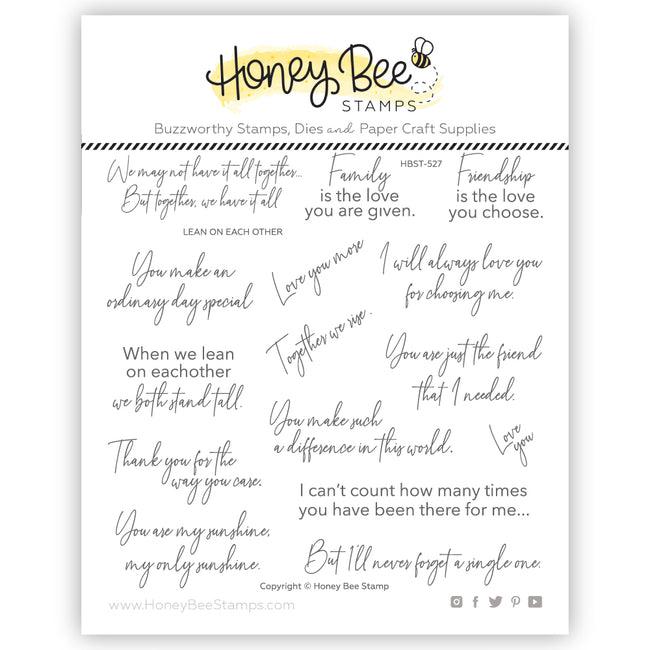 Honey Bee
STAMPS
Buzzworthy Stamps, Dies and Paper Craft Supplies
We may not have it all together...
But together, we have it all
Family
is the love
you are given.
HBST-527
Friendship
is the love
you choose.
LEAN ON EACH OTHER
You make an
ordinary day special
Love you more
I will always love you
for choosing me.
Together we rise.
When we lean
on eachother
we both stand tall.
You are just the friend
that I needed.
You make such
a difference in this world.
Love
you
Thank you for the
way you care.
I can't count how many times
you have been there for me...
You are my sunshine,
my only sunshine.
But I'll never forget a single one.
Copyright © Honey Bee Stamp
www.HoneyBeeStamps.com